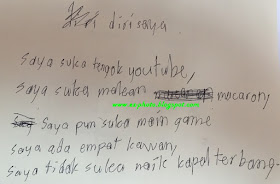 diri saya
saya suka tengok youtube,
saya suka makan macaron,
saya pun suka main game
saya ada empat kawan,
saya tidak suka naik kapal terbang.